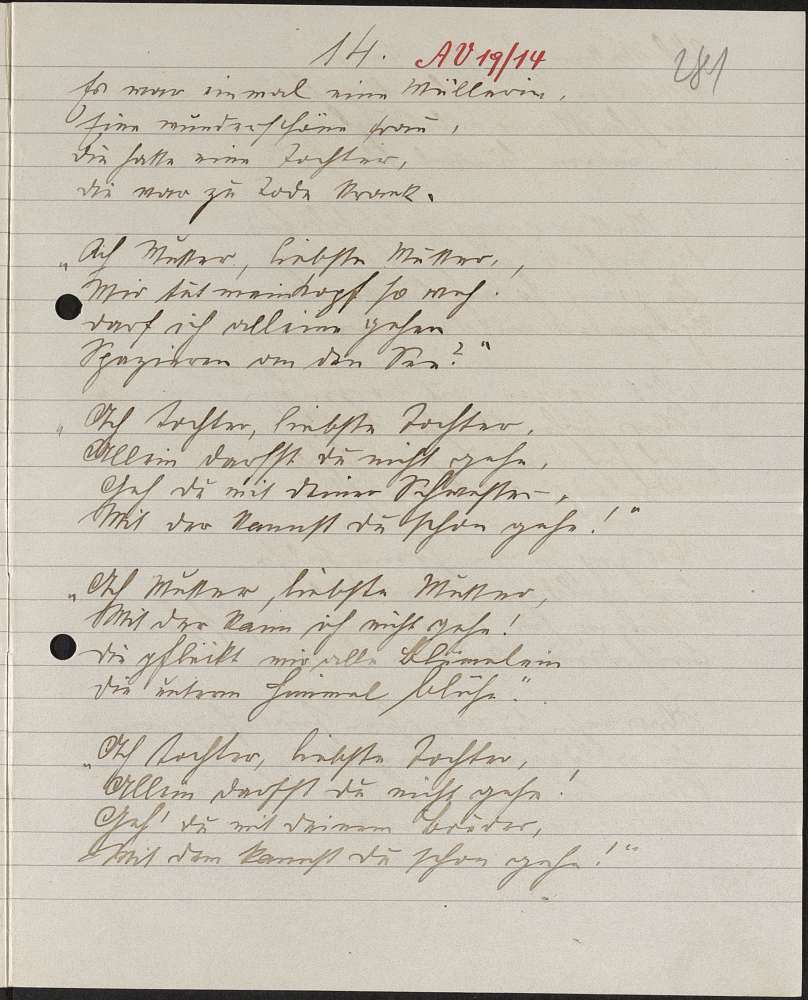 14. AV 19/14 281
Es war einmal eine Müllerin,
Eine wunderschöne Frau,
Die hatte eine Tochter,
Die war zu Tode krank.
„Ach Mutter, liebste Mutter,
Mir tut mein Kopf so weh.
Darf ich alleine gehen
Spazieren an den See?“
„Ach Tochter, liebste Tochter,
Allein darfst du nicht gehe,
Geh du mit deiner Schwester,
Mit der kannst du schon gehe!“
„Ach Mutter, liebste Mutter,
Mit der kann ich nicht gehe!
Die pflückt mir alle Blümelein
Die unterm Himmel blühe.“
„Ach Tochter, liebste Tochter,
Allein darfst du nicht gehe!
Geh' du mit deinem Bruder,
Mit dem kannst du schon gehe!“